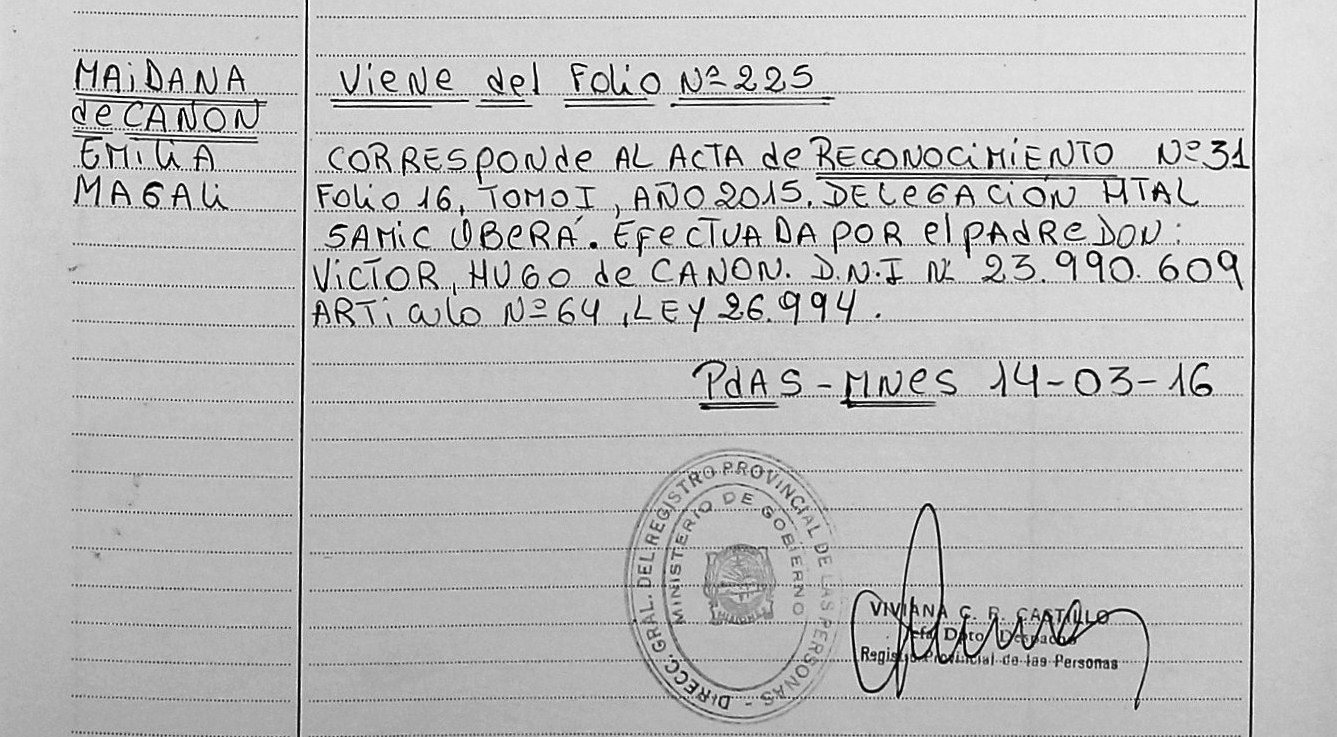 MAiDANA
de CANON
EMiLiA
MAGALi
Viene del Folio Nº 225
CORRESponde AL ACTA de RECONOCiMiENTO Nº 31
Folio 16, TOMO I, AÑO 2015. DELEGACiÓN MTAL
SAMIC OBERÁ. EFECTUADA POR el pAdRe DON:
ViCTOR, HUGO de CANON. D.N.I Nº 23.990.609
ARTiculo Nº 64, LEY 26.994.
PdAS - MNES 14-03-16
DIRECC. GRAL. DEL REGISTRO PROVINCIAL DE LAS PERSONAS -
MINISTERIO DE GOBIERNO
VIVIANA C. R. CASTILLO
Jefe Dpto Despacho
Registro Provincial de las Personas